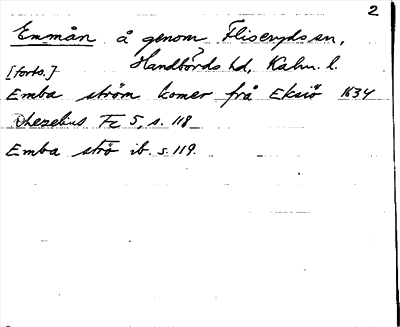 2
Emmån å genom Fliseryds sn,
[forts.] Handbörds hd, Kalm. l.
Emba ström komer frå Eksiö 1634
Chezelius Fc 5, s. 118
Emba strö ib. s. 119.